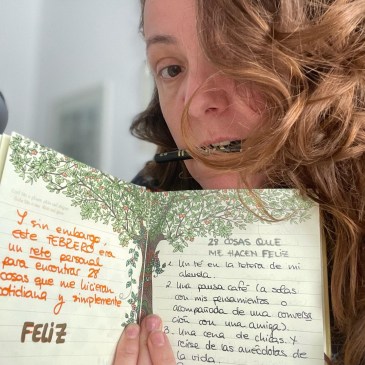 Y sin embargo
este FEBRERO era
un reto personal
para encontrar 28
cosas que me hicieran
cotidiana y simplemente
FELIZ
28 COSAS QUE
ME HACEN FELIZ
1. Un té en la tetera de mi
abuela.
2. Una pausa café (a solas
con mis pensamientos o
acompañada de una conversa
ción con una amiga).
3. Una cena de chicas. Y
reírse de las anécdotas de
la vida.